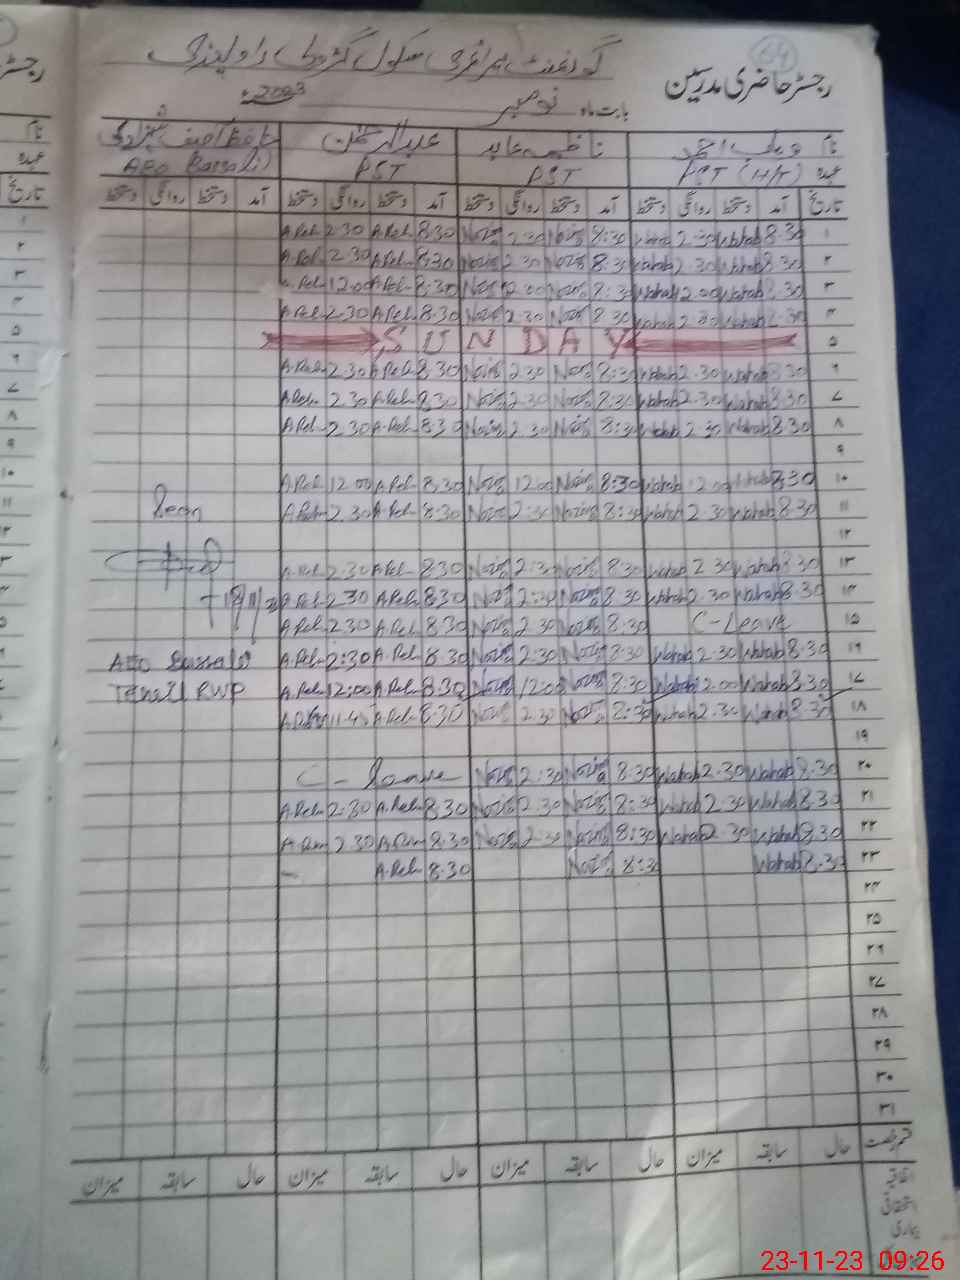 رجسٹر حاضری مدرسین
64
گورنمنٹ پرائمری سکول راولپنڈی
بابت ماہ نومبر 2023
نام وہاب احمد ناظمہ عابد عبدالرحمٰن حافظ آصف شہزاد
عہدہ PST (H/T) PST PST AEO Bassali
تاریخ آمد دستخط روانگی دستخط آمد دستخط روانگی دستخط آمد دستخط روانگی دستخط آمد دستخط روانگی دستخط
۱ 8:30 Wahab 2:30 Wahab 8:30 2:30 8:30 A.Reh 2:30 A.Reh
۲ 8:30 Wahab 2:30 Wahab 8:30 2:30 8:30 A.Reh 2:30 A.Reh
۳ 8:30 Wahab 12:00 Wahab 8:30 12:00 8:30 A.Reh 12:00 A.Reh
۴ 8:30 Wahab 2:30 Wahab 8:30 2:30 8:30 A.Reh 2:30 A.Reh
۵ SUNDAY
۶ 8:30 Wahab 2:30 Wahab 8:30 2:30 8:30 A.Reh 2:30 A.Reh
۷ 8:30 Wahab 2:30 Wahab 8:30 2:30 8:30 A.Reh 2:30 A.Reh
۸ 8:30 Wahab 2:30 Wahab 8:30 2:30 8:30 A.Reh 2:30 A.Reh
۹
۱۰ 8:30 Wahab 12:00 Wahab 8:30 12:00 8:30 A.Reh 12:00 A.Reh
۱۱ 8:30 Wahab 2:30 Wahab 8:30 2:30 8:30 A.Reh 2:30 A.Reh Seen
۱۲
۱۳ 8:30 Wahab 2:30 Wahab 8:30 2:30 8:30 A.Reh 2:30 A.Reh
۱۴ 8:30 Wahab 2:30 Wahab 8:30 2:30 8:30 A.Reh 2:30 A.Reh
۱۵ C-Leave 8:30 2:30 8:30 A.Reh 2:30 A.Reh
۱۶ 8:30 Wahab 2:30 Wahab 8:30 2:30 8:30 A.Reh 2:30 A.Reh AEO Bassali
۱۷ 8:30 Wahab 12:00 Wahab 8:30 12:00 8:30 A.Reh 12:00 A.Reh Tehsil RWP
۱۸ 8:30 Wahab 2:30 Wahab 8:30 2:30 8:30 A.Reh 11:45 A.Reh
۱۹
۲۰ 8:30 Wahab 2:30 Wahab 8:30 2:30 C-Leave
۲۱ 8:30 Wahab 2:30 Wahab 8:30 2:30 8:30 A.Reh 2:30 A.Reh
۲۲ 8:30 Wahab 2:30 Wahab 8:30 2:30 8:30 A.Reh 2:30 A.Reh
۲۳ 8:30 Wahab 8:30 8:30 A.Reh
۲۴
۲۵
۲۶
۲۷
۲۸
۲۹
۳۰
۳۱
قسم رخصت حال سابقہ میزان حال سابقہ میزان حال سابقہ میزان حال سابقہ میزان
اتفاقیہ
استحقاقی
بیماری
23-11-23 09:26